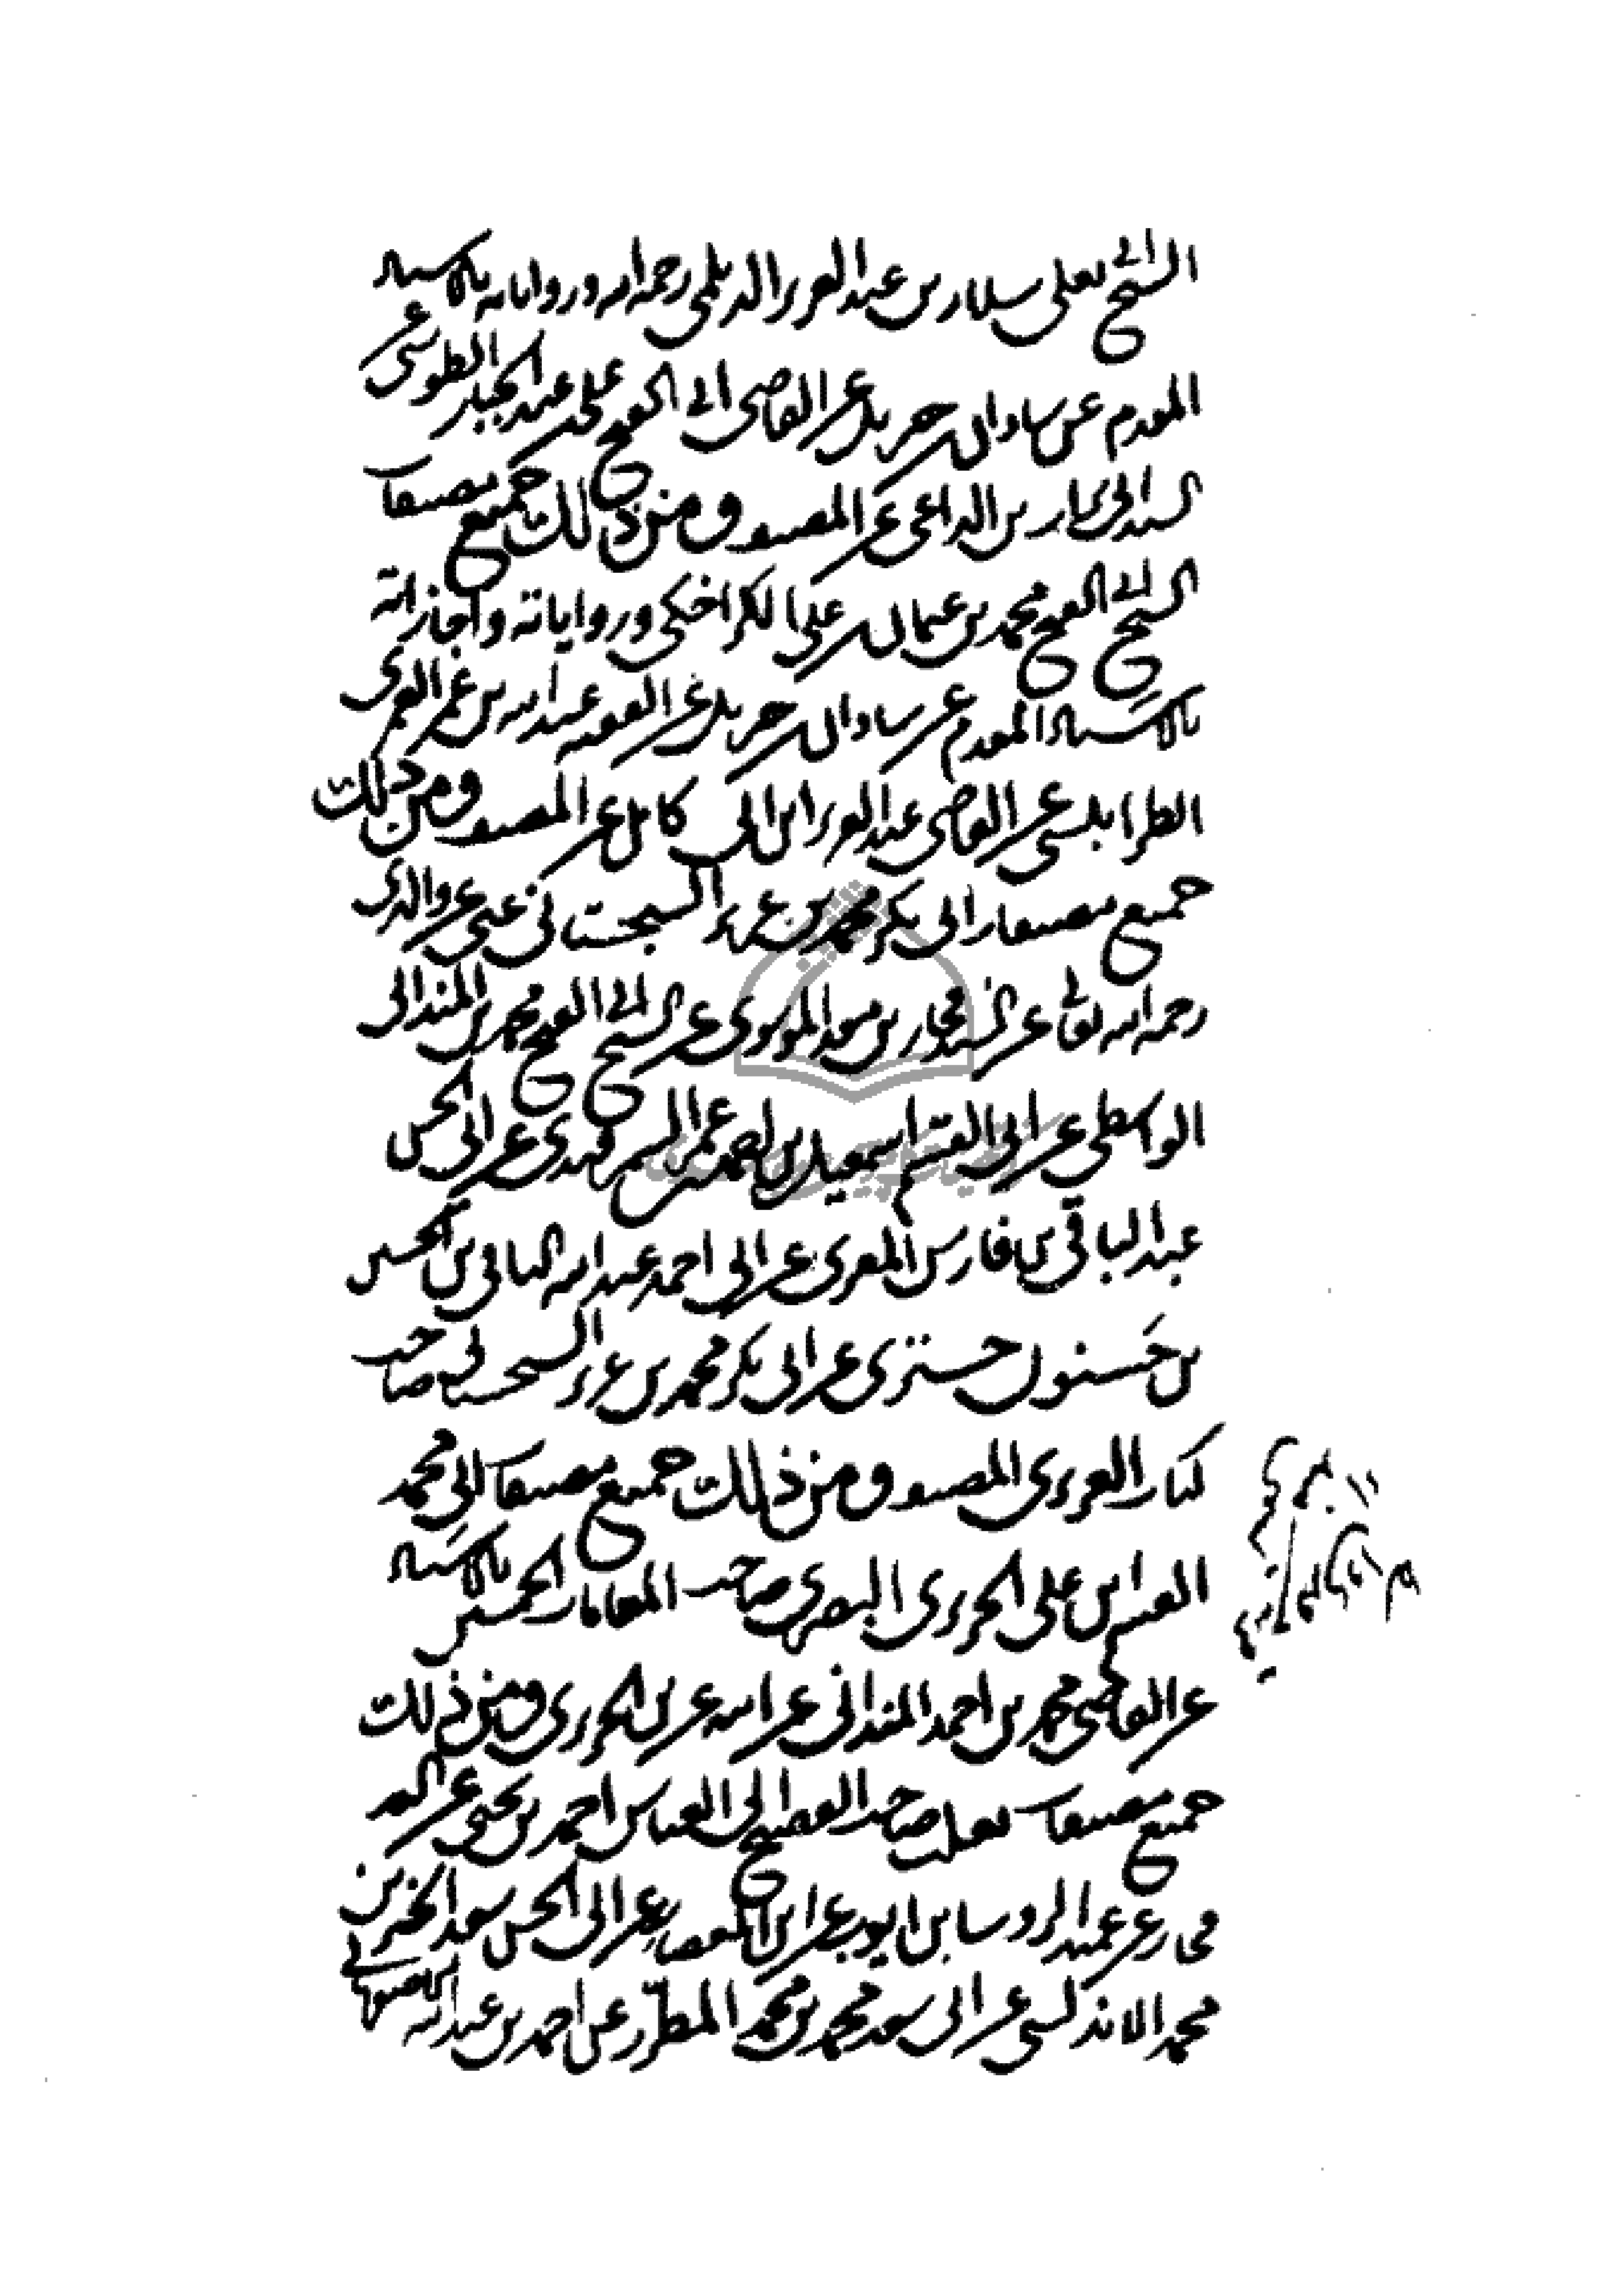 الشيخ أبي يعلى سلار بن عبد العزيز الديلمي رحمه الله ورواياته بالاسناد
المقدم عن شاذان بن جبريل عن القاضي أبي الفتح علي بن عبد الجبار الطوسي عن
السيد أبي تراب بن الداعي عن المصنف ومن ذلك جميع مصنفات
الشيخ أبي الفتح محمد بن عثمان بن علي الكراجكي ورواياته واجازاته
بالاسناد المقدم عن شاذان بن جبريل عن الفقيه عبد الله بن عمر العمري
الطرابلسي عن القاضي عبد العزيز ابن أبي كامل عن المصنف ومن ذلك
جميع مصنفات أبي بكر محمد بن عزيز السجستاني عني عن والدي
رحمه الله تعالى عن السيد فخار بن معد الموسوي عن الشيخ أبي الفتح محمد بن المندائي
الواسطي عن أبي القسم اسمعيل بن احمد بن عمر السمرقندي عن أبي الحسن
عبد الباقي بن فارس المقري عن أبي احمد عبد الله الباقي بن الحسين
بن حَسنون حستري عن أبي بكر محمد بن عزيز السجستاني صاحب
كتاب العزيزي المصنف ومن ذلك جميع مصنفات أبي محمد
القسم بن علي الحريري البصري صاحب المقامات الخمسين بالاسناد
عن القاضي محمد بن احمد المندائي عن ابيه عن ابن الحريري ومن ذلك
جميع مصنفات ثعلب صاحب الفصيح أبي العباس احمد بن يحيى عن السيد
فخار عن عميد الروسا بن ايوب عن ابن القصار عن أبي الحسن سعد الخير بن
محمد الاندلسي عن أبي سعد محمد بن محمد المطرّز عن احمد بن عبد الله الاصبهاني